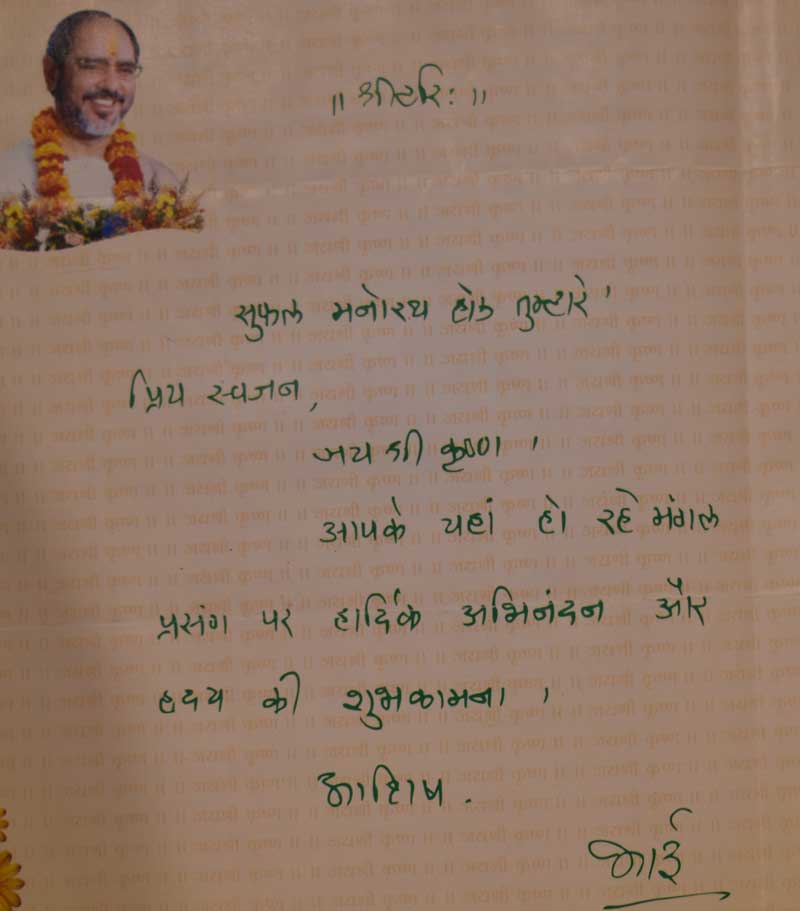 ॥ श्रीहरिः ॥
सुफल मनोरथ होउ तुम्हारे ।
प्रिय स्वजन,
जय श्री कृष्ण ।
आपके यहां हो रहे मंगल
प्रसंग पर हार्दिक अभिनंदन और
हृदय की शुभकामना ।
आशिष .
भाई